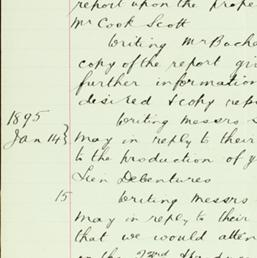 report upon the prope
Mr Cook Scott
Writing Mr Bache
copy of the report giv
further information
desired & copy rep
1895
Jan 14 Writing Messrs
May in reply to their
to the production of y
Lien Debentures
15 Writing Messrs
May in reply to their
that we would atten
on the 23rd